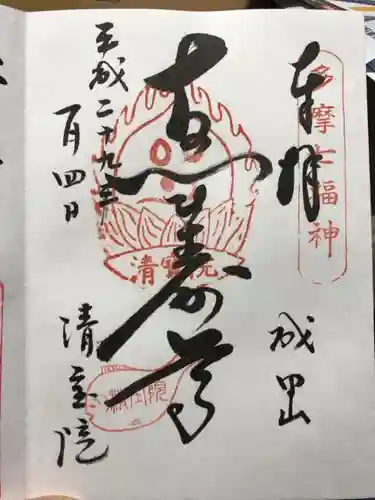 多摩七福神
奉拝
成田山
恵比寿尊
清寳院
平成二十九年
一月四日
清宝院